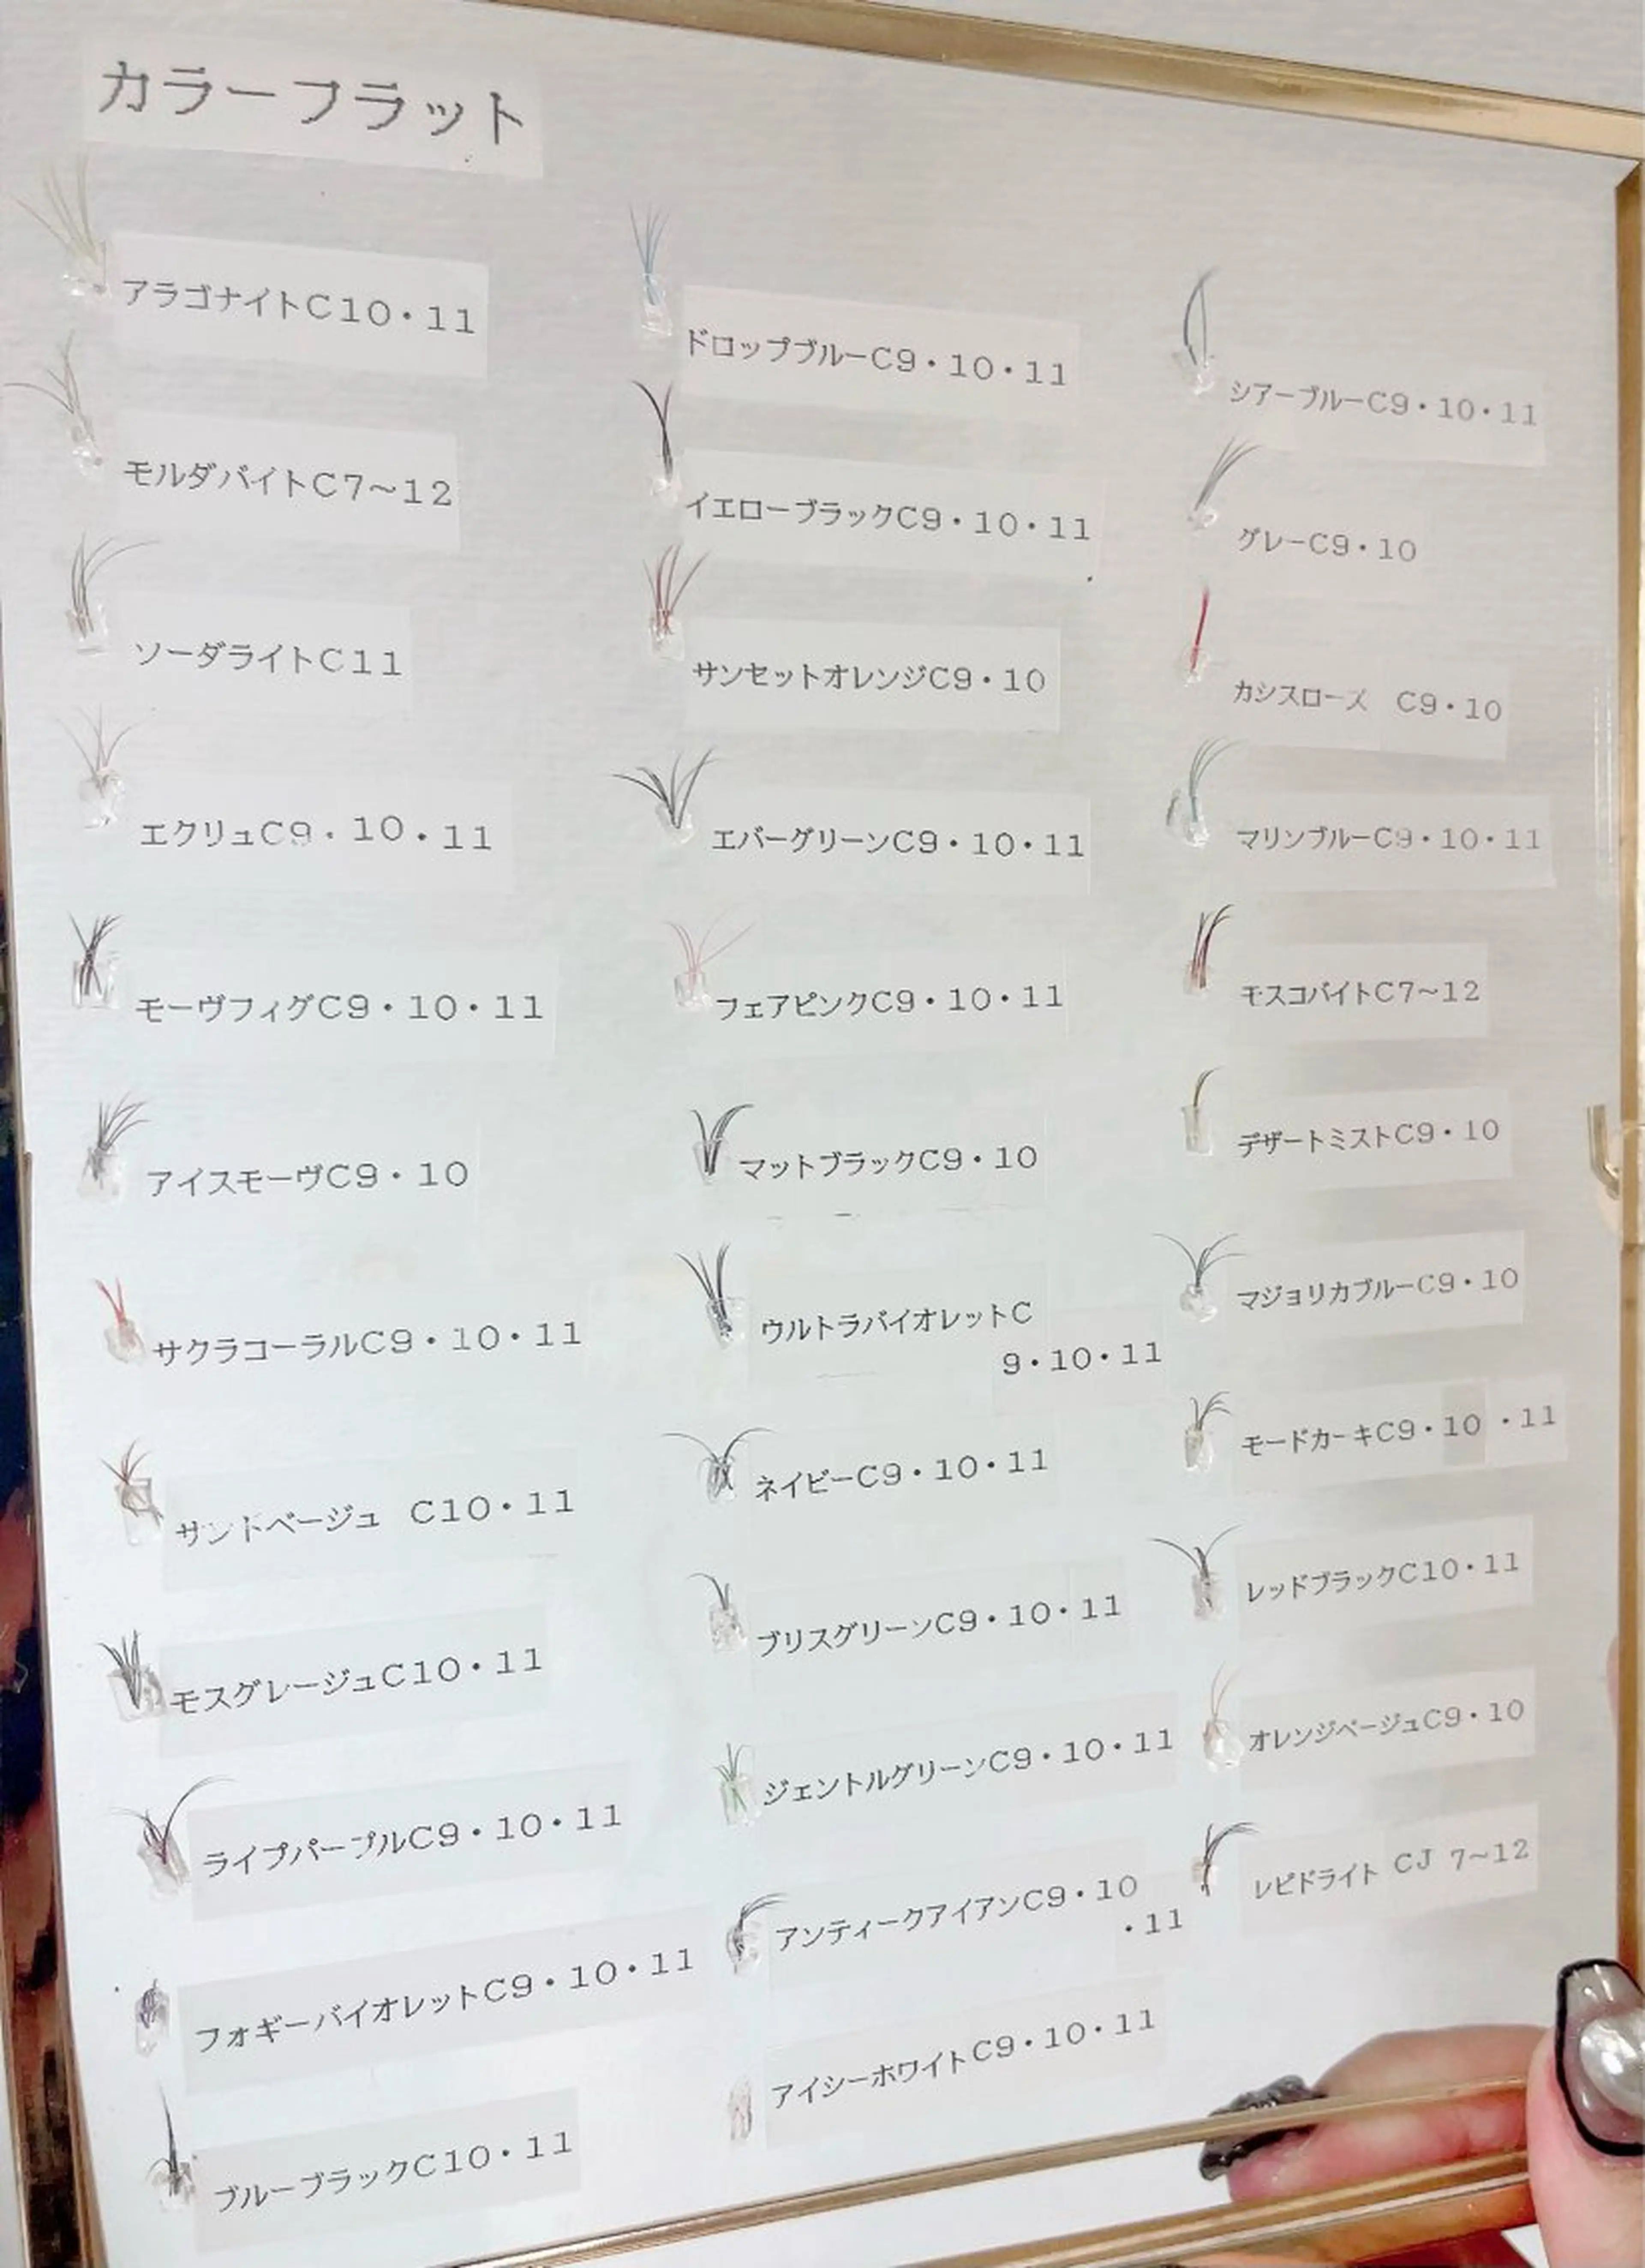 カラーフラット
アラゴナイトC10・11
モルダバイトC7～12
ソーダライトC11
エクリュC9・10・11
モーヴフィグC9・10・11
アイスモーヴC9・10
サクラコーラルC9・10・11
サンドベージュ C10・11
モスグレージュC10・11
ライプパープルC9・10・11
フォギーバイオレットC9・10・11
ブルーブラックC10・11
ドロップブルーC9・10・11
イエローブラックC9・10・11
サンセットオレンジC9・10
エバーグリーンC9・10・11
フェアピンクC9・10・11
マットブラックC9・10
ウルトラバイオレットC
9・10・11
ネイビーC9・10・11
ブリスグリーンC9・10・11
ジェントルグリーンC9・10・11
アンティークアイアンC9・10
・11
アイシーホワイトC9・10・11
シアーブルーC9・10・11
グレーC9・10
カシスローズ C9・10
マリンブルーC9・10・11
モスコバイトC7～12
デザートミストC9・10
マジョリカブルーC9・10
モードカーキC9・10・11
レッドブラックC10・11
オレンジベージュC9・10
レピドライト CJ 7～12